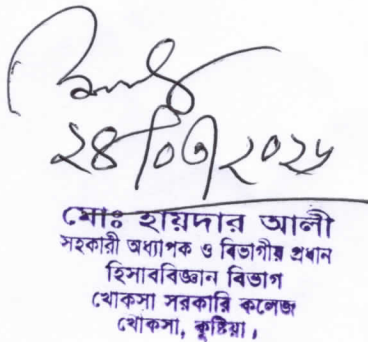 মোঃ হায়দার আলী
সহকারী অধ্যাপক ও বিভাগীয় প্রধান
হিসাববিজ্ঞান বিভাগ
খোকসা সরকারি কলেজ
খোকসা, কুষ্টিয়া।